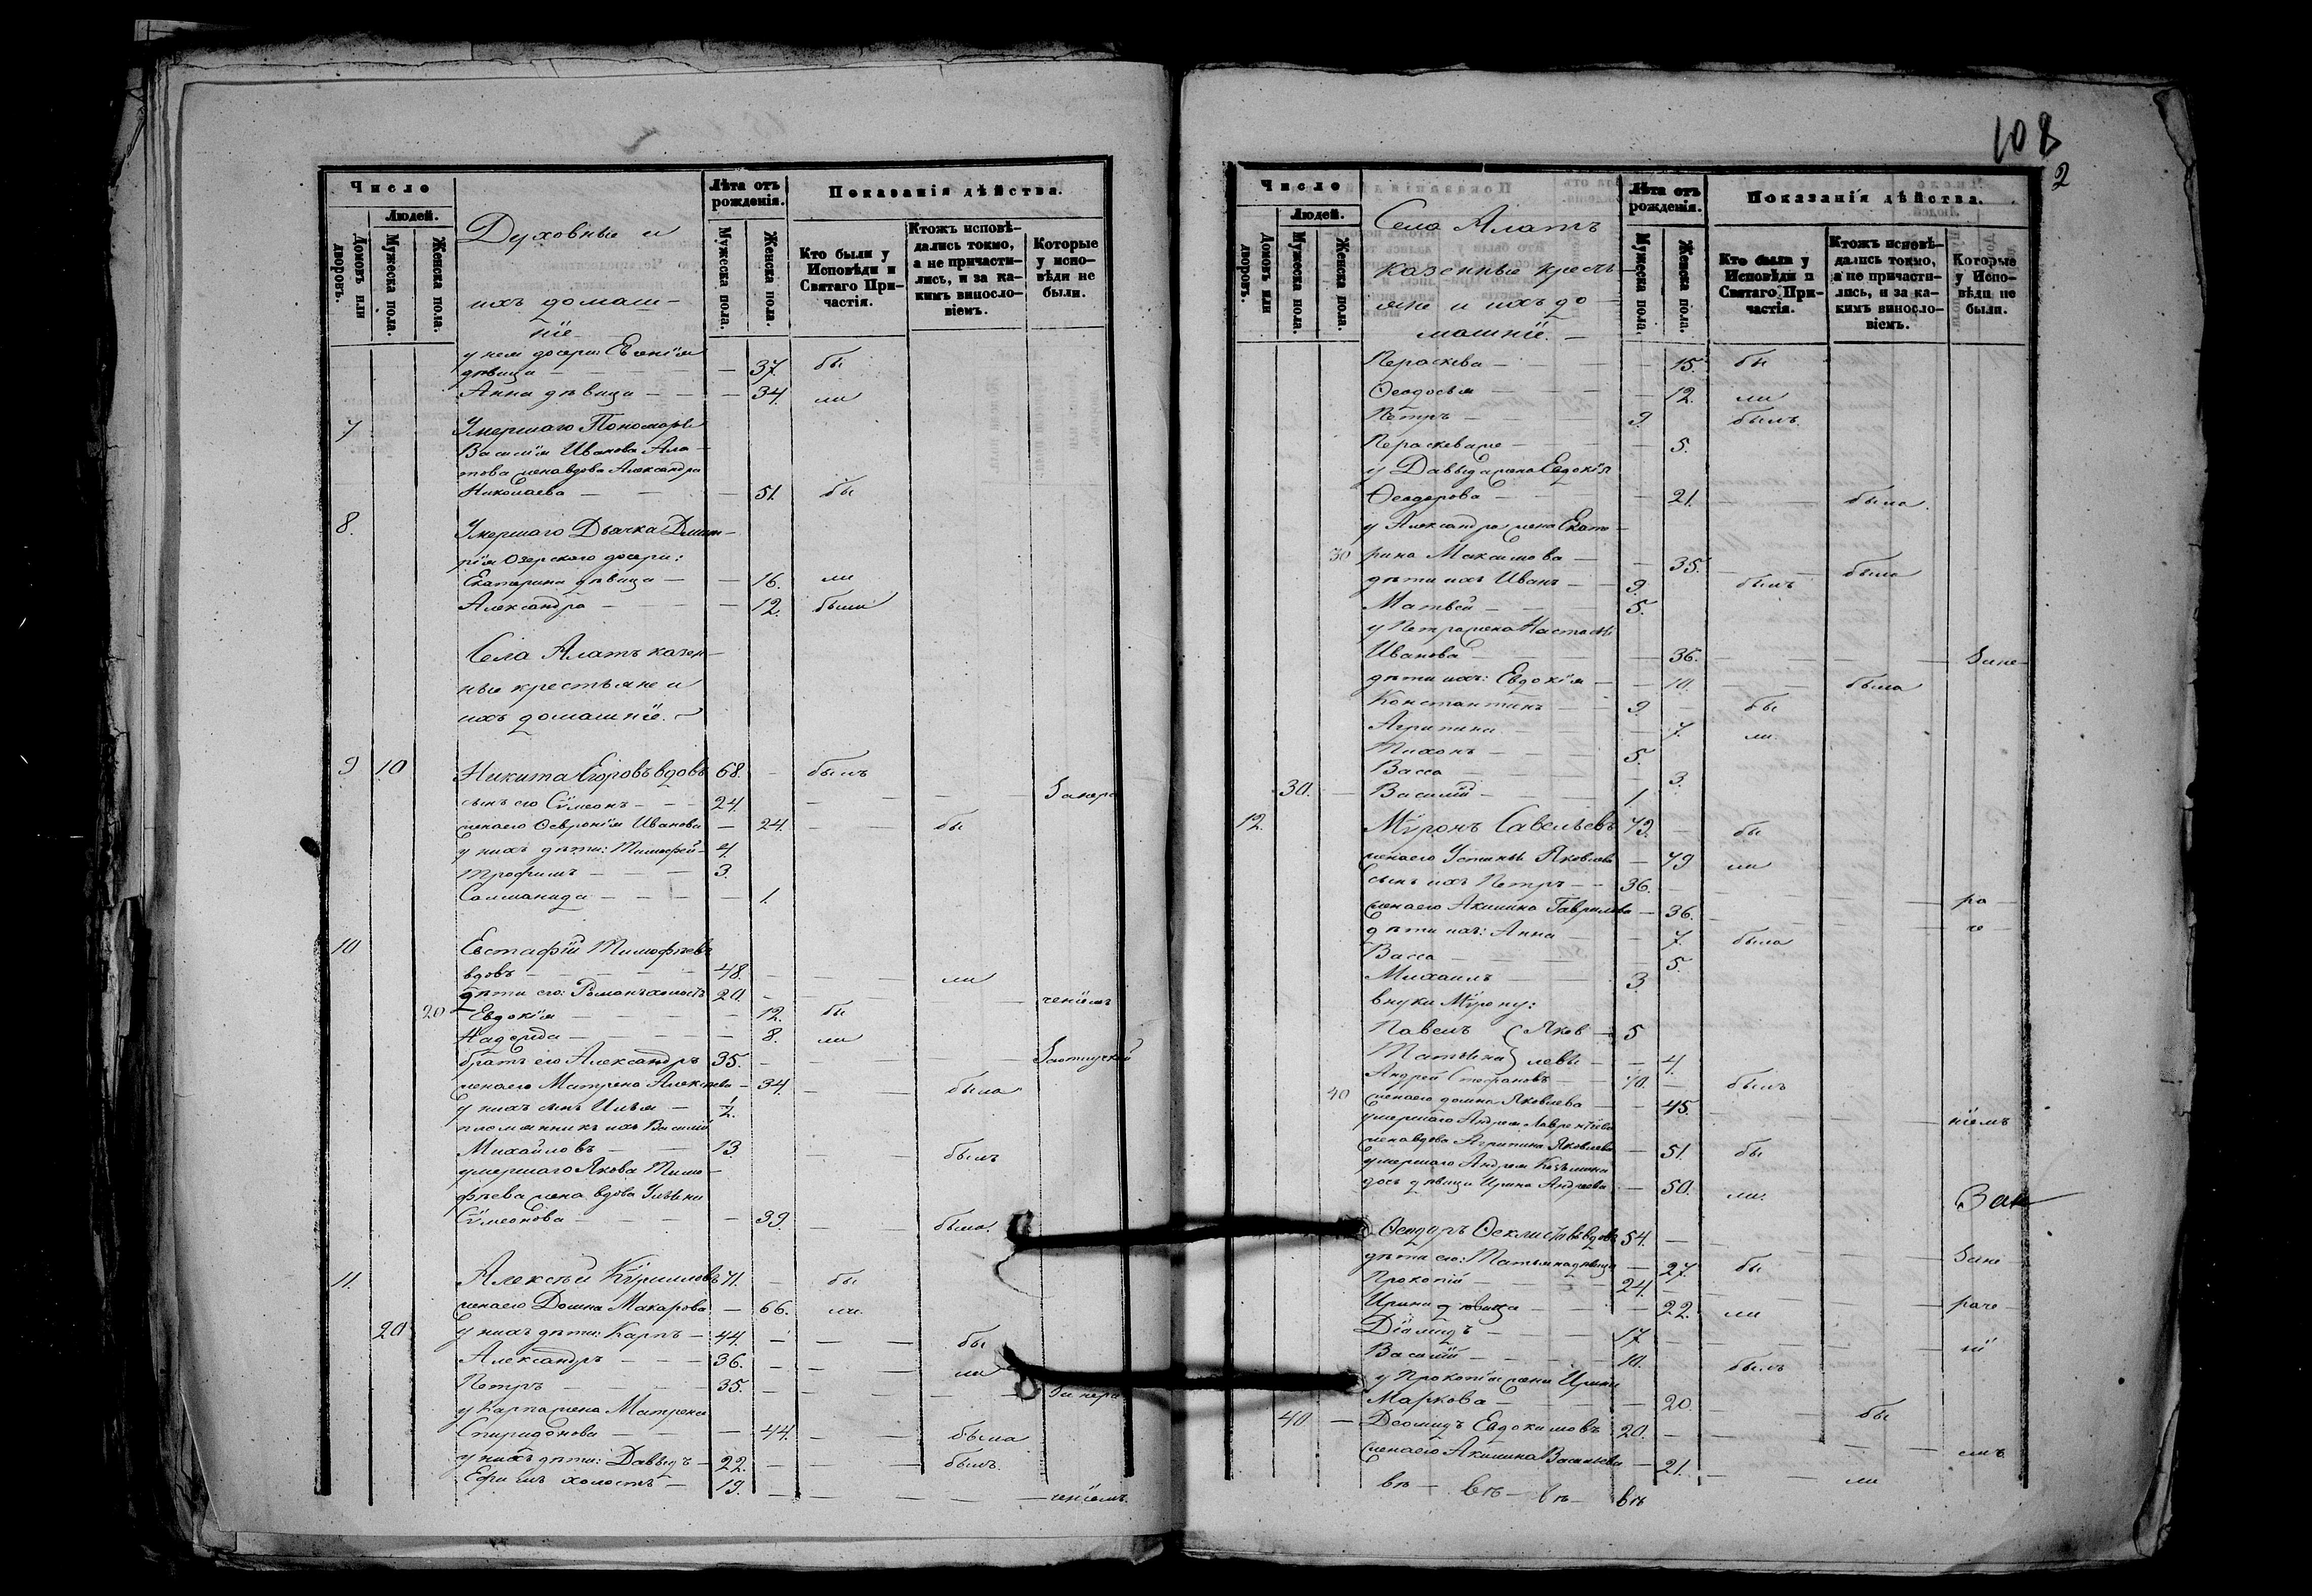 Число
Людей.
Домовъ или дворовъ.
Мужеска пола.
Женска пола.
Духовные и
ихъ домаш-
нiе
Лѣта отъ рожденія.
Мужеска пола.
Женска пола.
Показанія дѣйства.
Кто были у Исповѣди и Святаго Причастія.
Ктожъ исповѣдались токмо, а не причастились, и за какимъ винословіемъ.
Которые у исповѣди не были.
у нея дочери: Евгенія
дѣвица — 37. бы
Анна дѣвица — 34. ли
7 Умершаго Пономаря
Василія Иванова Ала-
това жена вдова Александра
Николаева — 51. бы
8. Умершаго Дьячка Дмит-
рія Озерскаго дочери:
Екатерина дѣвица — 16. ли
Александра — 12. были
Села Алатъ казен-
ные крестьяне и
ихъ домашніе.
9 10 Никита Егоровъ вдовъ 68. — былъ
сынъ его Сѵмеонъ — 24. — Занера
жена его Февронія Иванова — 24. — бы
у нихъ дѣти: Тимофей — 4.
Трофимъ — 3.
Соломанида — 1.
10 Евстафій Тимофѣевъ
вдовъ — 48. — ли
дѣти его: Романъ холостъ 20. — ченіемъ
20 Евдокія — 12. бы
Надежда — 8. ли
братъ его Александръ 35. — Заотлучкой
жена его Матрена Алексѣева — 34. — была
у нихъ сынъ Илья — 1/2.
племянникъ ихъ Василій
Михайловъ — 13. — былъ
умершаго Якова Тимо-
фѣева жена вдова Ульяна
Сѵмеонова — 39. — была.
11. Алексѣй Кѵрилловъ 71. — бы
жена его Домна Макарова — 66. ли.
20 у нихъ дѣти: Карпъ — 44. — бы
Александръ — 36. — ли
Петръ — 35. — За нера
у Карпа жена Матрена
Спиридонова — 44. — была
у нихъ дѣти: Давыдъ — 22. — былъ.
Ефимъ холостъ — 19. — ченіемъ.
108
2
Число
Людей.
Домовъ или дворовъ.
Мужеска пола.
Женска пола.
Села Алатъ
казенные кресть-
яне и ихъ до-
машніе.
Лѣта отъ рожденія.
Мужеска пола.
Женска пола.
Показанія дѣйства.
Кто были у Исповѣди и Святаго Причастія.
Ктожъ исповѣдались токмо, а не причастились, и за какимъ винословіемъ.
Которые у Исповѣди не были.
Пераскева — 15. бы
Ѳеодосья — 12. ли
Петръ — 9. былъ
Пераскева же — 5.
у Давыда жена Евдокія
Ѳеодорова — 21. — была.
у Александра жена Екате-
30 рина Максимова — 35. — была
дѣти ихъ Иванъ — 9. былъ
Матвей — 5.
у Петра жена Настасья
Иванова — 36. — Зане-
дѣти ихъ: Евдокія — 10. — была
Константинъ — 9. — бы
Агрипина — 7. ли.
Тихонъ — 5.
Васса — 3.
30. — Василій — 1.
12. Мѵронъ Савельевъ 79. — бы
жена его Устинья Яковлева — 79 ли
сынъ ихъ Петръ — 36. —
жена его Акилина Гаврилова — 36. — ра
дѣти ихъ: Анна — 7. была — че
Васса — 5.
Михаилъ — 3
внуки Мѵрону:
Павелъ (Яков — 5
Татьяна) левы — 4.
Андрей Стефановъ — 70. — былъ
40 жена его домна Яковлева — 45. —
умершаго Андрея Лаврентіева — ніемъ
жена вдова Агрипина Яковлева — 51. бы
умершаго Андрея Козьмина
дочь дѣвица Ирина Андреева — 50. ли. Зан
Ѳеодоръ Ѳеклистовъ вдовъ 54. —
дѣти его: Татьяна дѣвица — 27. бы — Зане
Прокопій — 24. —
Ирина дѣвица — 22. ли — раче
Діомидъ — 17 —
Василій — 10. былъ — ні
у Прокопія жена Ирина
Маркова — 20. — бы
40. — Діомидъ Евдокимовъ 20. — емъ
жена его Акилина Васильева — 21. — ли
въ — въ — въ — въ